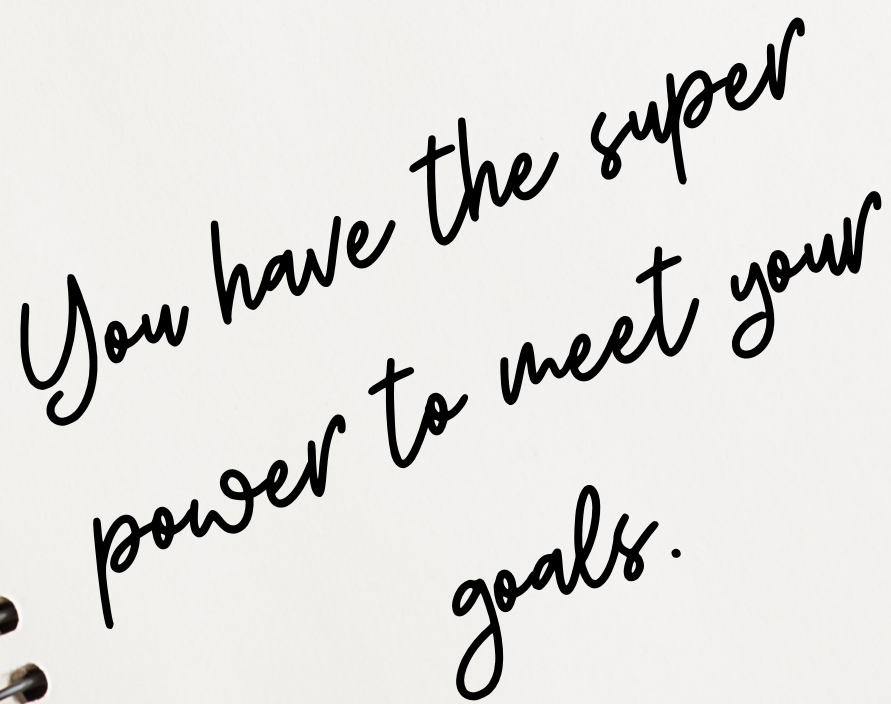 You have the super
power to meet your
goals.